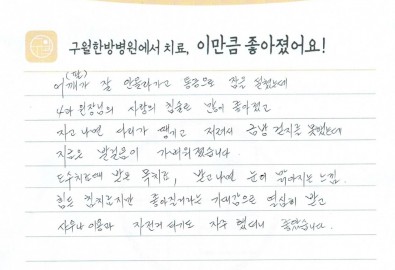 구월한방병원에서 치료, 이만큼 좋아졌어요!
(팔)
어깨가 잘 안올라가고 통증으로 잠을 설쳤는데
4과 원장님의 사랑의 침술로 많이 좋아졌고
자고 나면 다리가 땡기고 저려서 금방 걷지를 못했는데
지금은 발걸음이 가벼워졌습니다.
도수치료에 받은 목치료, 받고나면 눈이 맑아지는 느낌.
힘은 들지만 좋아질거라는 기대감으로 열심히 받고
샤워나 이용과 자전거 타기도 자주 했더니 좋았습니다.